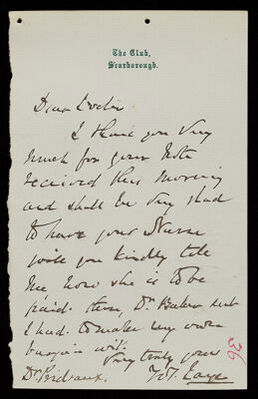 The Club,
Scarborough.
Dear Doctor.
I thank you very
much for your Note
received this morning
and shall be very glad
to have your Nurse
will you kindly tell
me how she is to be
paid. then, Dr. Baker
I had to make my own
with.
Very truly yours
Dr. Prideaux.
36